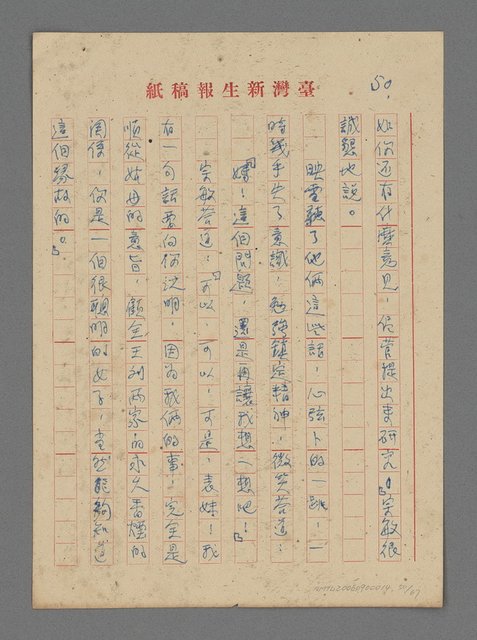 臺灣新生報稿紙
50.
如你还有什麼意見，侭管提出來研究！」宗敏很
誠懇地說。
映雪聽了他倆這些話，心弦卜的一跳，一
時幾乎失了意識，勉強鎮定精神，微笑答道：
「嫂！這個問題，還是再讓我想一想吧！」
宗敏答道：「可以，可以，可是，表妹！我
有一句話要向你说明，因為我俩的事，完全是
順從姑母的意旨，顧全王刘两家的永久香煙的
関係，你是一個很聰明的女子，當然能夠知道
這個緣故的。」
nmtl20060900014 50/67